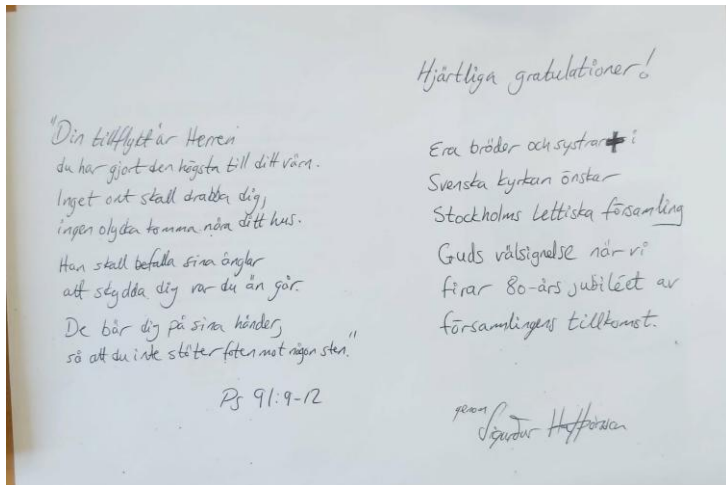 "Din tillflykt är Herren
du har gjort den högsta till ditt värn.
Inget ont skall drabba dig,
ingen olycka komma nära ditt hus.
Han skall befalla sina änglar
att skydda dig var du än går.
De bär dig på sina händer,
så att du inte stöter foten mot någon sten."
Ps 91:9-12
Hjärtliga gratulationer!
Era bröder och systrar i
Svenska kyrkan önskar
Stockholms Lettiska församling
Guds välsignelse när vi
firar 80-års jubiléet av
församlingens tillkomst.
genom
Sigurður